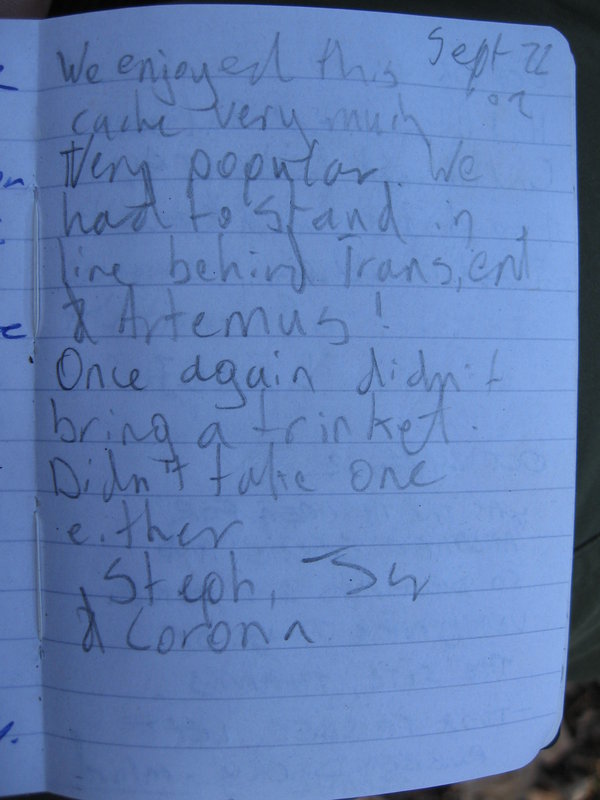 Sept 22
'02
We enjoyed this
cache very much
Very popular. We
had to stand in
line behind Transient
& Artemus!
Once again didn't
bring a trinket.
Didn't take one
either
Steph,
& Corona